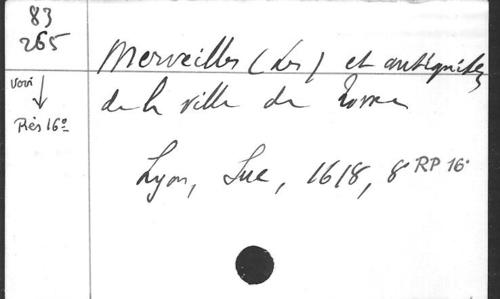 83
265
Merveilles (Les) et antiquitez
de la ville de Rome
voir
↓
Rés 16º
Lyon, Luc, 1618, 8 RP 16º